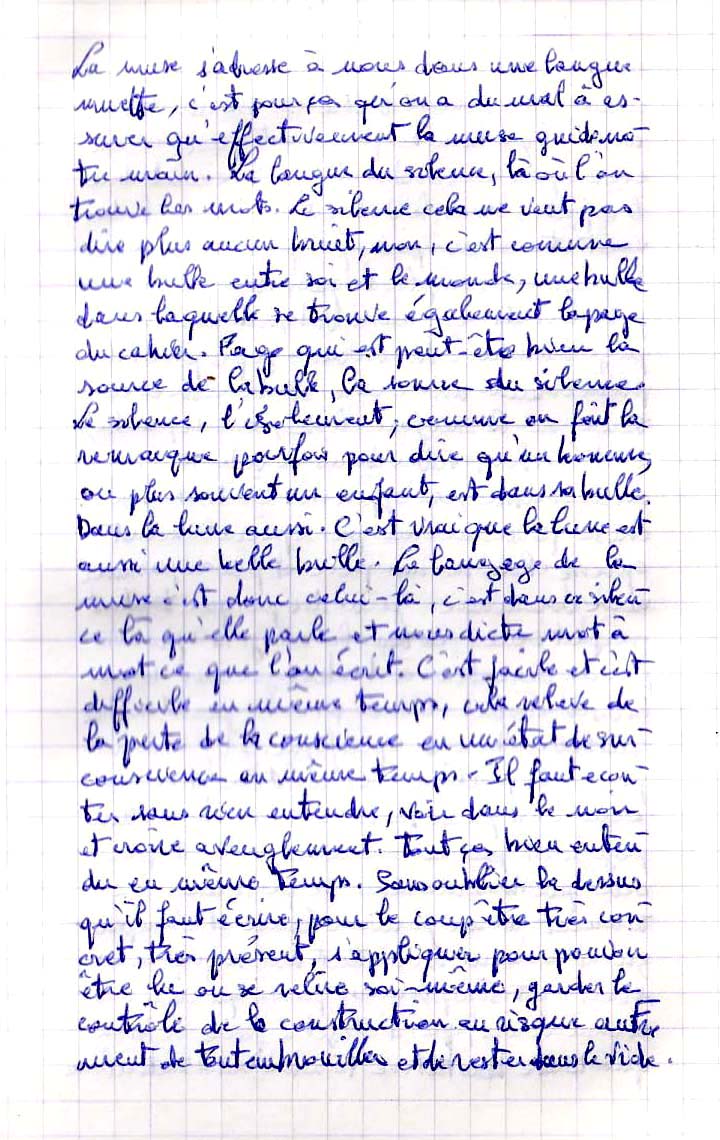 La muse s'adresse à nous dans une langue
muette, c'est pour ça qu'on a du mal à as-
surer qu'effectivement la muse guide no-
tre main. La langue du silence, là où l'on
trouve les mots. Le silence cela ne veut pas
dire plus aucun bruit, non, c'est comme
une bulle entre soi et le monde, une bulle
dans laquelle se trouve également la page
du cahier. Page qui est peut-être bien la
source de la bulle, la source du silence.
Le silence, l'isolement, comme on fait la
remarque parfois pour dire qu'un homme,
ou plus souvent un enfant, est dans sa bulle.
Dans la lune aussi. C'est vrai que la lune est
aussi une belle bulle. Le langage de la
muse c'est donc celui-là, c'est dans ce silen-
ce là qu'elle parle et nous dicte mot à
mot ce que l'on écrit. C'est facile et c'est
difficile en même temps, cela relève de
la perte de la conscience en un état de sur-
conscience en même temps. Il faut écou-
ter sans rien entendre, voir dans le noir
et croire aveuglement. Tout ça bien enten-
du en même temps. Sans oublier là dessus
qu'il faut écrire, pour le coup être très con-
cret, très présent, s'appliquer pour pouvoir
être lu ou se relire soi-même, garder le
contrôle de la construction au risque autre-
ment de tout embrouiller et de rester dans le vide.